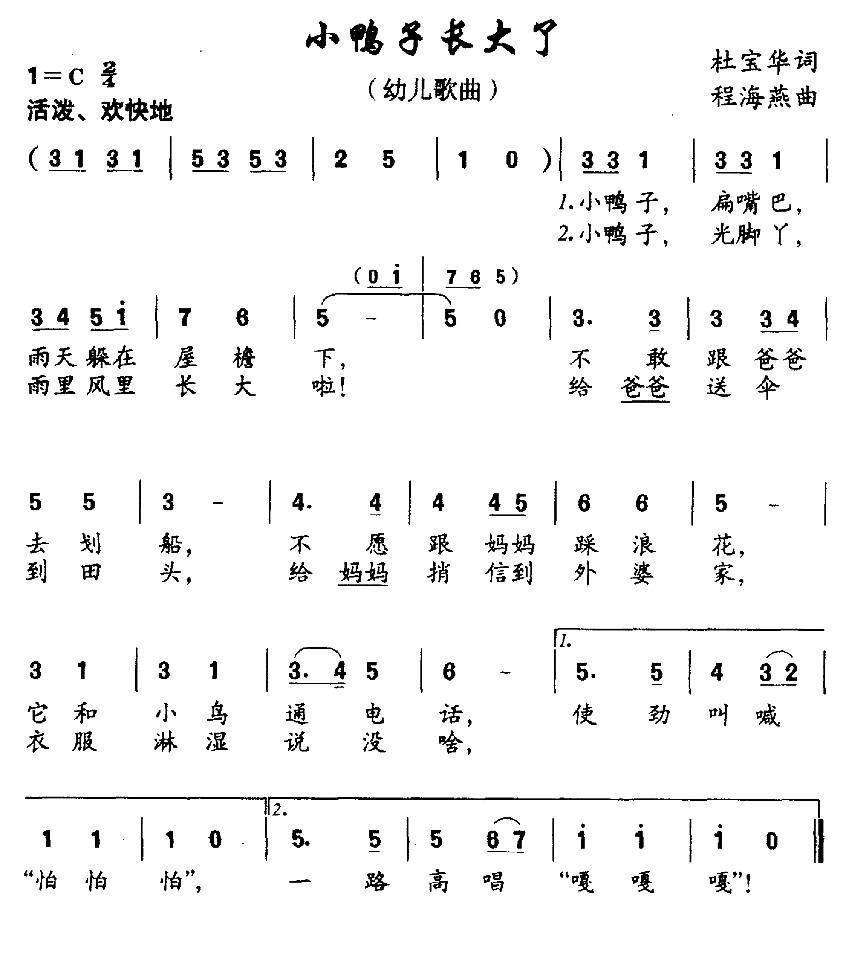 小鸭子长大了
1=C 2/4
(幼儿歌曲)
杜宝华词
活泼、欢快地
程海燕曲
( 3 1 3 1 | 5 3 5 3 | 2 5 | 1 0 ) | 3 3 1 | 3 3 1 |
1.小鸭子, 扁嘴巴,
2.小鸭子, 光脚丫,
( 0 i | 7 6 5 )
3 4 5 i | 7 6 | 5 - | 5 0 | 3. 3 | 3 3 4 |
雨天躲在 屋檐 下, 不 敢 跟爸爸
雨里风里 长大 啦! 给 爸爸 送伞
5 5 | 3 - | 4. 4 | 4 4 5 | 6 6 | 5 - |
去划 船, 不 愿 跟妈妈 踩浪 花,
到田 头, 给 妈妈 捎信到 外婆 家,
1.
3 1 | 3 1 | 3. 4 5 | 6 - | 5. 5 | 4 3 2 |
它和 小鸟 通电 话, 使 劲 叫喊
衣服 淋湿 说没 啥,
2.
1 1 | 1 0 | 5. 5 | 5 6 7 | i i | i 0 ‖
“怕怕 怕”, 一 路 高唱 “嘎嘎 嘎”!